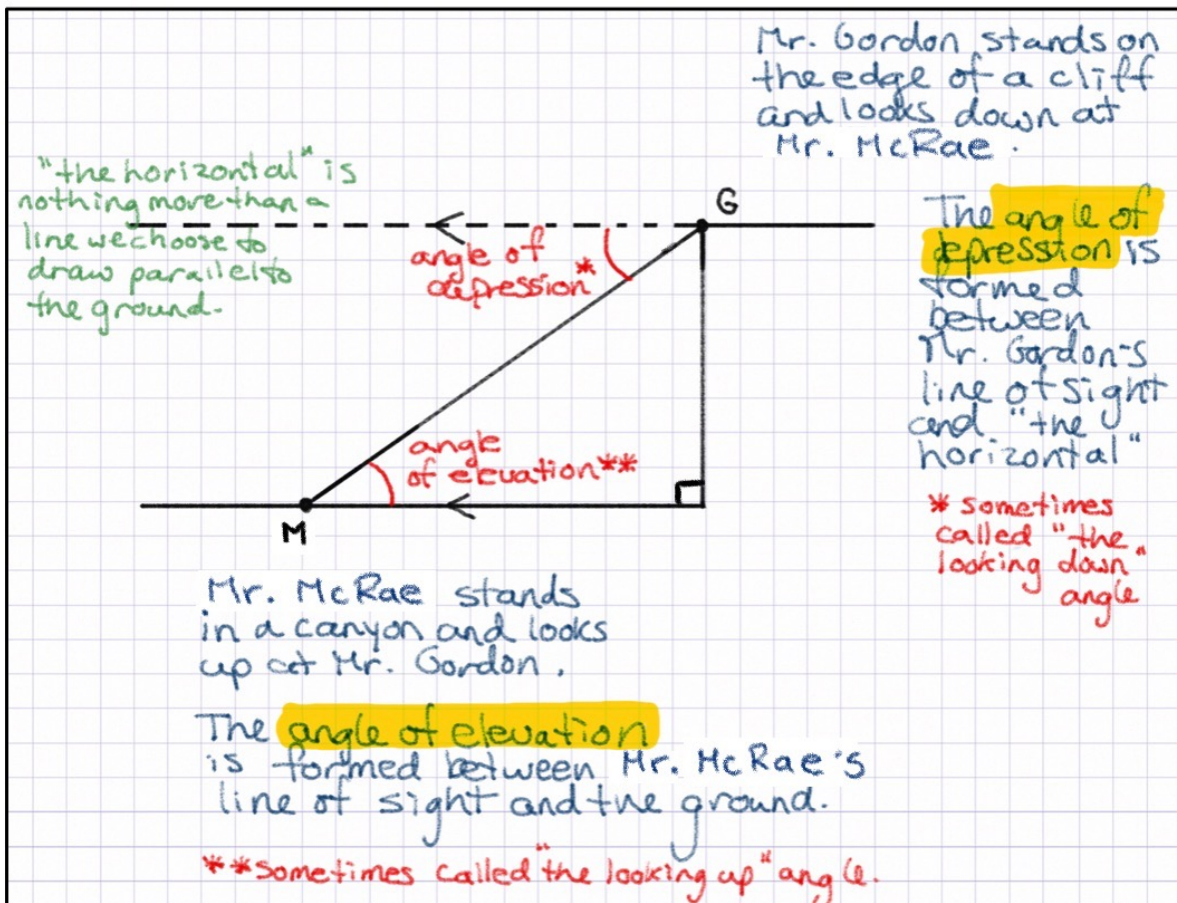 Mr. Gordon stands on
the edge of a cliff
and looks down at
Mr. McRae.
"the horizontal" is
nothing more than a
line we choose to
draw parallel to
the ground.
G
angle of
depression*
The angle of
depression is
formed
between
Mr. Gordon's
line of sight
and "the
horizontal"
* sometimes
called "the
looking down"
angle
angle
of elevation**
M
Mr. McRae stands
in a canyon and looks
up at Mr. Gordon.
The angle of elevation
is formed between Mr. McRae's
line of sight and the ground.
**sometimes called "the looking up" angle.